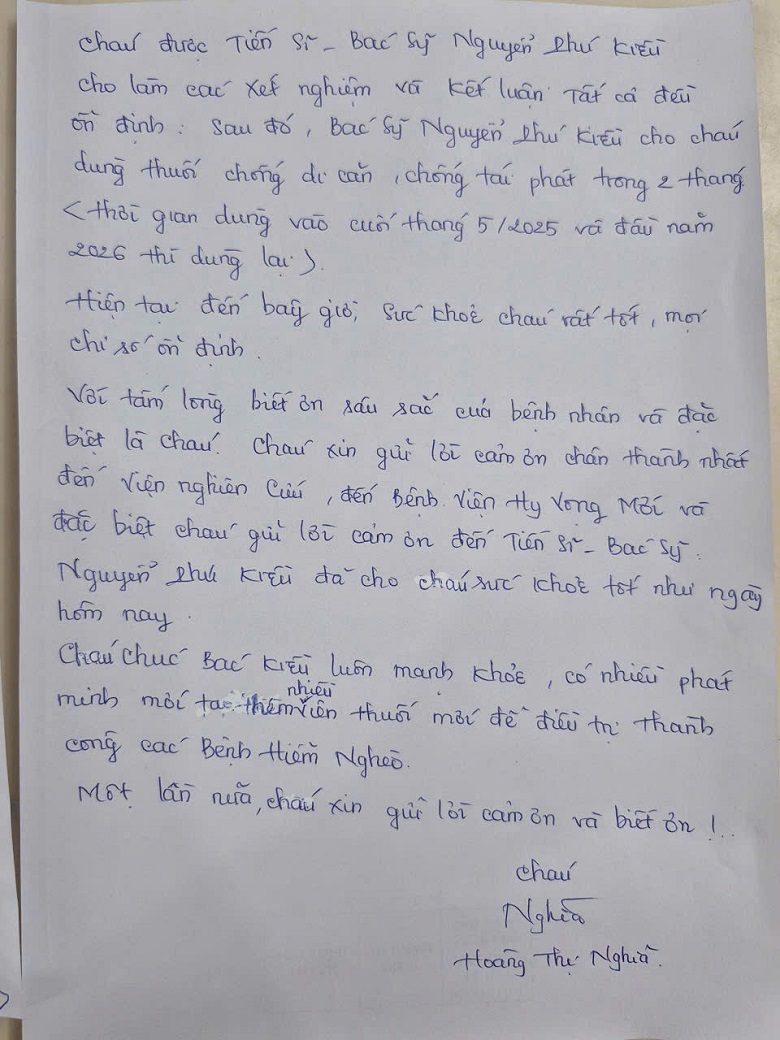 Cháu được Tiến Sĩ - Bác Sỹ Nguyễn Phú Kiều
cho làm các xét nghiệm và kết luận tất cả đều
ổn định. Sau đó, Bác Sỹ Nguyễn Phú Kiều cho cháu
dùng thuốc chống di căn, chống tái phát trong 2 tháng
<thời gian dùng vào cuối tháng 5/2025 và đầu năm
2026 thì dùng lại).
Hiện tại đến bây giờ, sức khoẻ cháu rất tốt, mọi
chỉ số ổn định.
Với tấm lòng biết ơn sâu sắc của bệnh nhân và đặc
biệt là cháu. Cháu xin gửi lời cảm ơn chân thành nhất
đến viện nghiên cứu, đến Bệnh viện Hy Vọng Mới và
đặc biệt cháu gửi lời cảm ơn đến Tiến Sĩ - Bác Sỹ.
Nguyễn Phú Kiều đã cho cháu sức khoẻ tốt như ngày
hôm nay.
Cháu chúc Bác Kiều luôn mạnh khoẻ, có nhiều phát
minh mới tạo thêm nhiều viên thuốc mới để điều trị thành
công các Bệnh Hiểm Nghèo.
Một lần nữa, cháu xin gửi lời cảm ơn và biết ơn!..
Cháu
Nghĩa
Hoàng Thị Nghĩa.